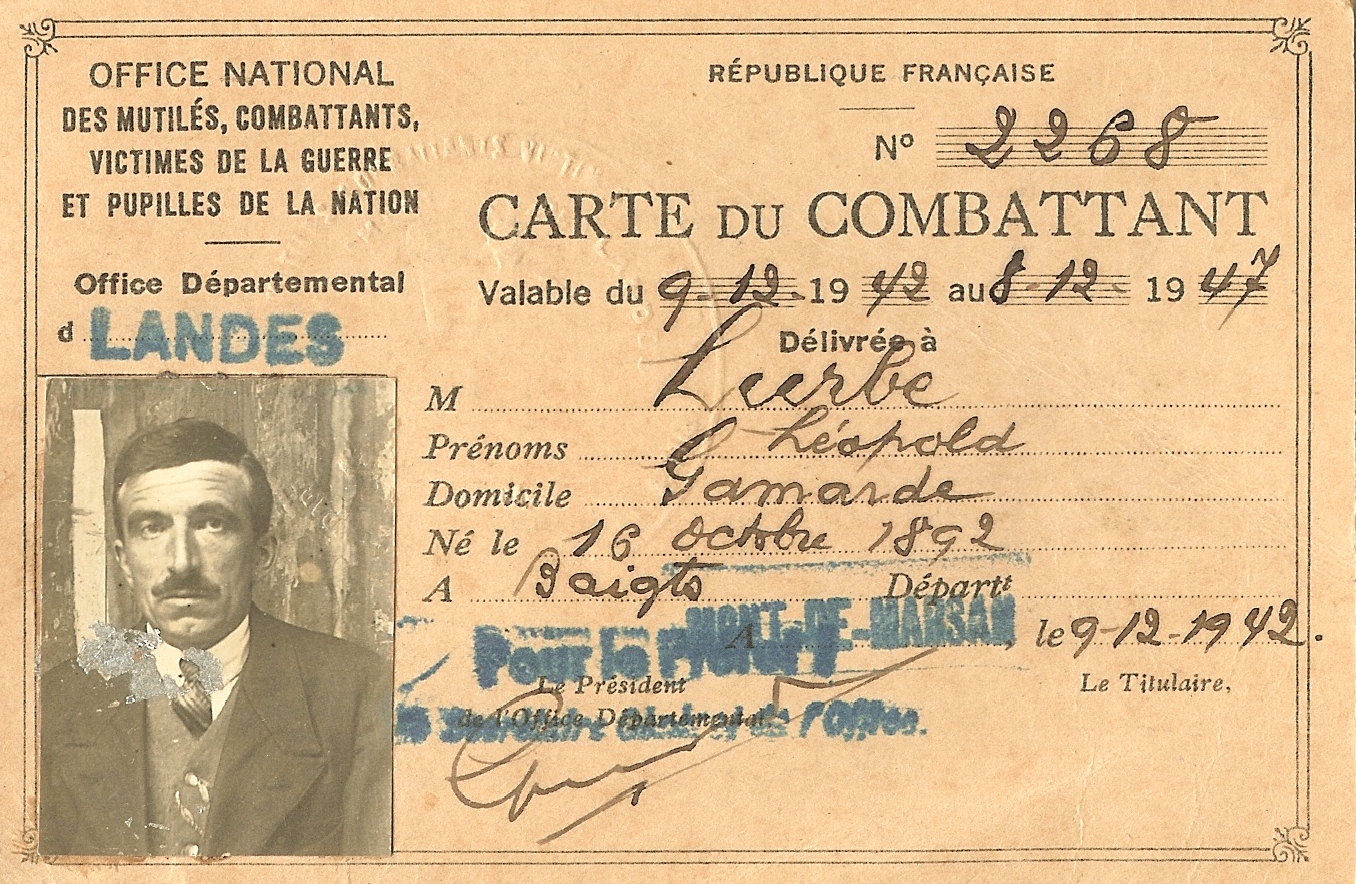 OFFICE NATIONAL
DES MUTILÉS, COMBATTANTS,
VICTIMES DE LA GUERRE
ET PUPILLES DE LA NATION
Office Départemental
d LANDES
RÉPUBLIQUE FRANÇAISE
Nº 2268
CARTE DU COMBATTANT
Valable du 9-12-1942 au 8-12-1947
Délivrée à
M Luerbe
Prénoms Léopold
Domicile Gamarde
Né le 16 octobre 1892
A Baigts Départt
A MONT-DE-MARSAN, le 9-12-1942.
Pour le Préfet
Le Président
de l'Office Départemental
Le Secrétaire Général de l'Office.
Le Titulaire,